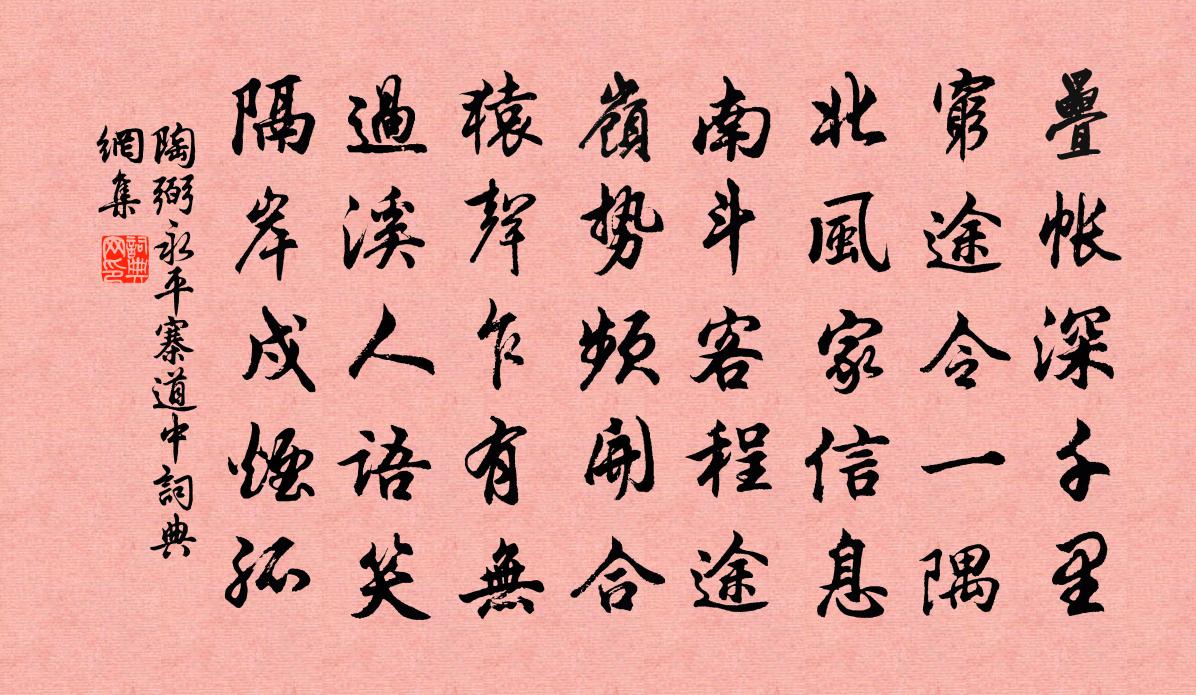 疊帳深千里
窮途令一隅
北風家信息
南斗客程途
嶺勢頻開合
猿聲乍有無
過溪人語笑
隔岸戍煙孤
陶弼永平寨道中詞典
網集
詞典
网印